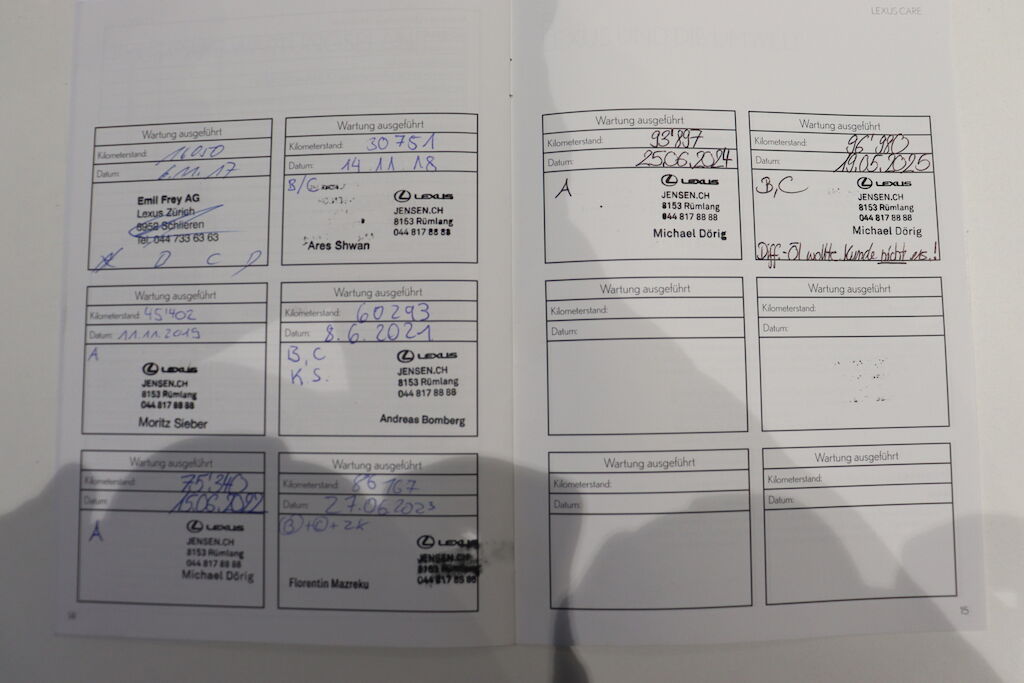 LEXUS CARE
Wartung ausgeführt
Kilometerstand: 16050
Datum: 6.11.17
Emil Frey AG
Lexus Zürich
8952 Schlieren
Tel. 044 733 63 63
Wartung ausgeführt
Kilometerstand: 30751
Datum: 14 11 18
B/C
LEXUS
JENSEN.CH
8153 Rümlang
044 817 88 88
Ares Shwan
Wartung ausgeführt
Kilometerstand: 45'402
Datum: 11.11.2019
A
LEXUS
JENSEN.CH
8153 Rümlang
044 817 88 88
Moritz Sieber
Wartung ausgeführt
Kilometerstand: 60293
Datum: 8.6.2021
B, C
K.S.
LEXUS
JENSEN.CH
8153 Rümlang
044 817 88 88
Andreas Bomberg
Wartung ausgeführt
Kilometerstand: 75'340
Datum: 15.06.2022
A
LEXUS
JENSEN.CH
8153 Rümlang
044 817 88 88
Michael Dörig
Wartung ausgeführt
Kilometerstand: 86167
Datum: 27.06.2023
(B)+(C)+ZK
LEXUS
JENSEN.CH
8153 Rümlang
044 817 88 88
Florentin Mazreku
14
Wartung ausgeführt
Kilometerstand: 93'897
Datum: 25.06.2024
A
LEXUS
JENSEN.CH
8153 Rümlang
044 817 88 88
Michael Dörig
Wartung ausgeführt
Kilometerstand: 96'980
Datum: 19.05.2025
B, C
LEXUS
JENSEN.CH
8153 Rümlang
044 817 88 88
Michael Dörig
Diff.-Öl wollte Kunde nicht ers.!
Wartung ausgeführt
Kilometerstand:
Datum:
Wartung ausgeführt
Kilometerstand:
Datum:
Wartung ausgeführt
Kilometerstand:
Datum:
Wartung ausgeführt
Kilometerstand:
Datum:
15